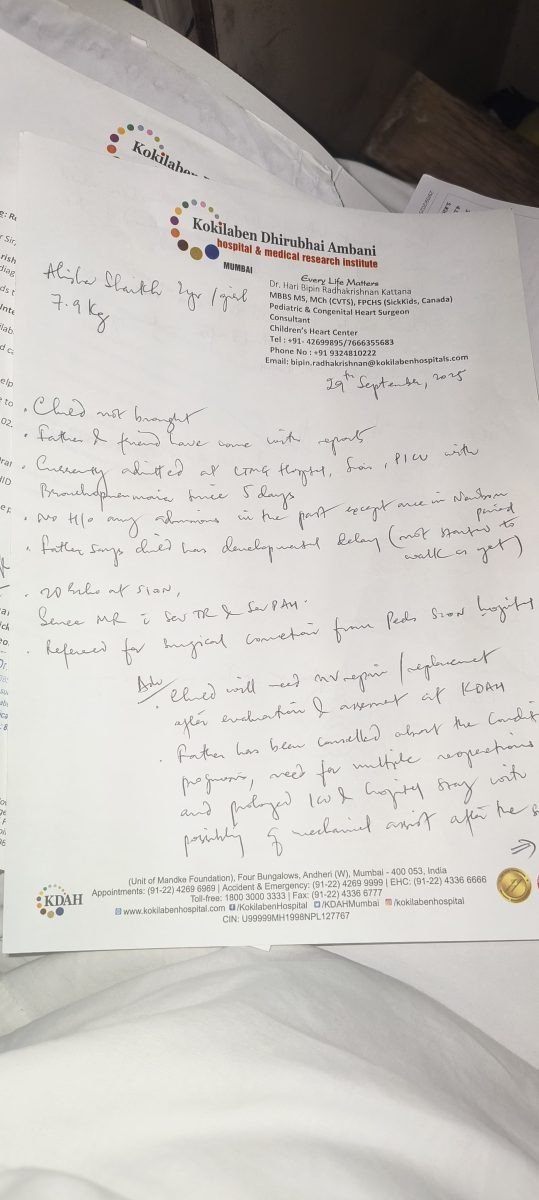 Kokilaben Dhirubhai Ambani
hospital & medical research institute
MUMBAI
Every Life Matters
Dr. Hari Bipin Radhakrishnan Kattana
MBBS MS, MCh (CVTS), FPCHS (SickKids, Canada)
Pediatric & Congenital Heart Surgeon
Consultant
Children's Heart Center
Tel : +91- 42699895/7666355683
Phone No : +91 9324810222
Email: bipin.radhakrishnan@kokilabenhospitals.com
Shaikh 2yr / girl
7.9 Kg
29th September, 2025
• Child not brought
• Father & friend have come with reports
• Currently admitted at LTMG Hospital, Sion, PICU with
Bronchopneumonia since 5 days
• No H/o any admissions in the past except once in Newborn period
• Father says child has developmental delay (not started to
walk as yet)
• 2D Echo at SION,
Severe MR c Sev TR & Sev PAH.
• Referred for surgical correction from Peds Sion hospital
Adv
• Child will need MV repair / replacement
after evaluation & assessment at KDAH
• Father has been counselled about the
prognosis, need for multiple reoperations
and prolonged ICU & hospital stay with
possibility of mechanical assist after the
KDAH
(Unit of Mandke Foundation), Four Bungalows, Andheri (W), Mumbai - 400 053, India
Appointments: (91-22) 4269 6969 | Accident & Emergency: (91-22) 4269 9999 | EHC: (91-22) 4336 6666
Toll-free: 1800 3000 3333 | Fax: (91-22) 4336 6777
www.kokilabenhospital.com /KokilabenHospital /KDAHMumbai /kokilabenhospital
CIN: U99999MH1998NPL127767